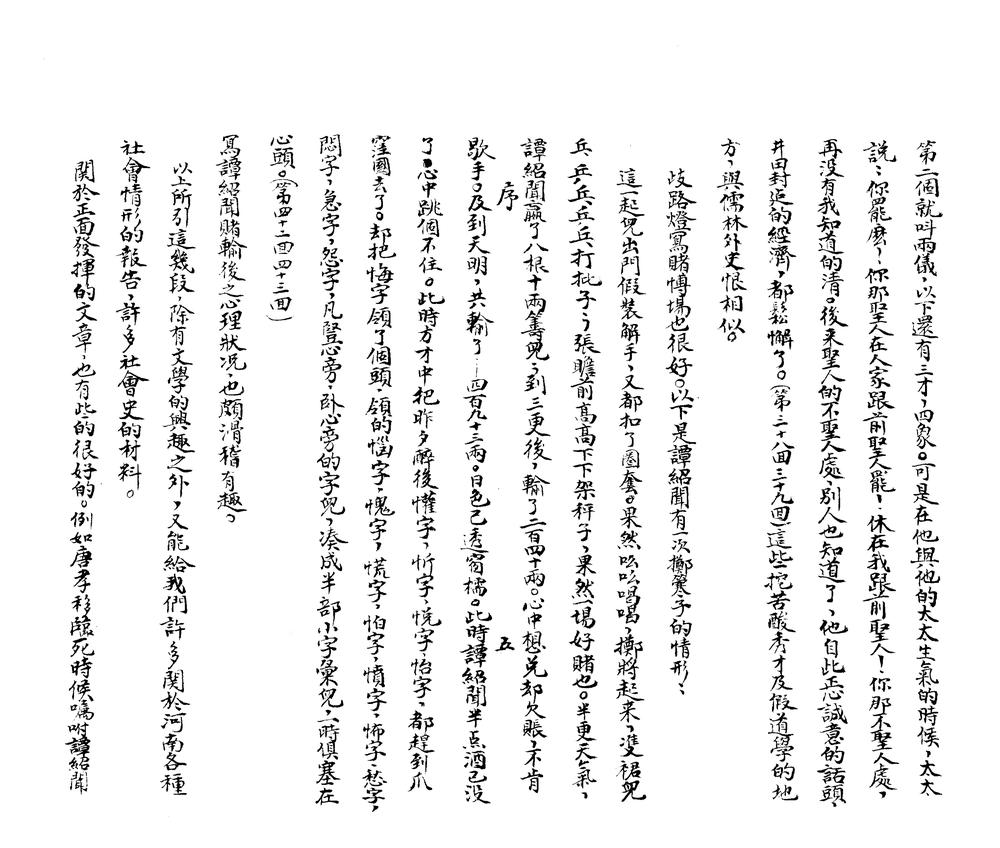 第二個就叫兩儀，以下還有三才，四象。可是在他與他的太太生氣的時候，太太
說：你罷麽！你那聖人在人家跟前聖人罷！休在我跟前聖人！你那不聖人處，
再沒有我知道的清。後來聖人的不聖人處，別人也知道了，他自此正心誠意的話頭，
井田封建的經濟，都鬆懈了。（第三十八回三十九回）這些挖苦酸秀才及假道學的地
方，與儒林外史很相似。
歧路燈寫賭博場也很好。以下是譚紹聞有一次擲骰子的情形：
這一起兒出門假裝解手，又都扣了圈套。果然吆吆喝喝，擲將起來，準裙兒
乒乒乒乒乒打批子，張瞻前高高下下架秤子，果然一場好賭也。半更天氣，
譚紹聞贏了八根十兩籌兒，到三更後，輸了二百四十兩。心中想兌却欠賬，不肯
序
五
歇手。及到天明，共輸了一四百九十三兩。日色已透窗櫺。此時譚紹聞半点酒已沒
了，心中跳個不住。此時方才中把昨夕醉後懽字，忻字，悅字，怡字，都趕到爪
窪國去了。却把悔字領了個頭，領的惱字，愧字，慌字，怕字，憤字，怖字，愁字，
悶字，急字，怨字，凡豎心旁，卧心旁的字兒，凑成半部小字彙兒，一時俱塞在
心頭。（第四十二回四十三回）
寫譚紹聞賭輸後之心理狀况，也頗滑稽有趣。
以上所引這幾段，除有文學的興趣之外，又能給我們許多關於河南各種
社會情形的報告，許多社會史的材料。
関於正面發揮的文章，也有些的很好的。例如唐孝移臨死時候囑咐譚紹聞